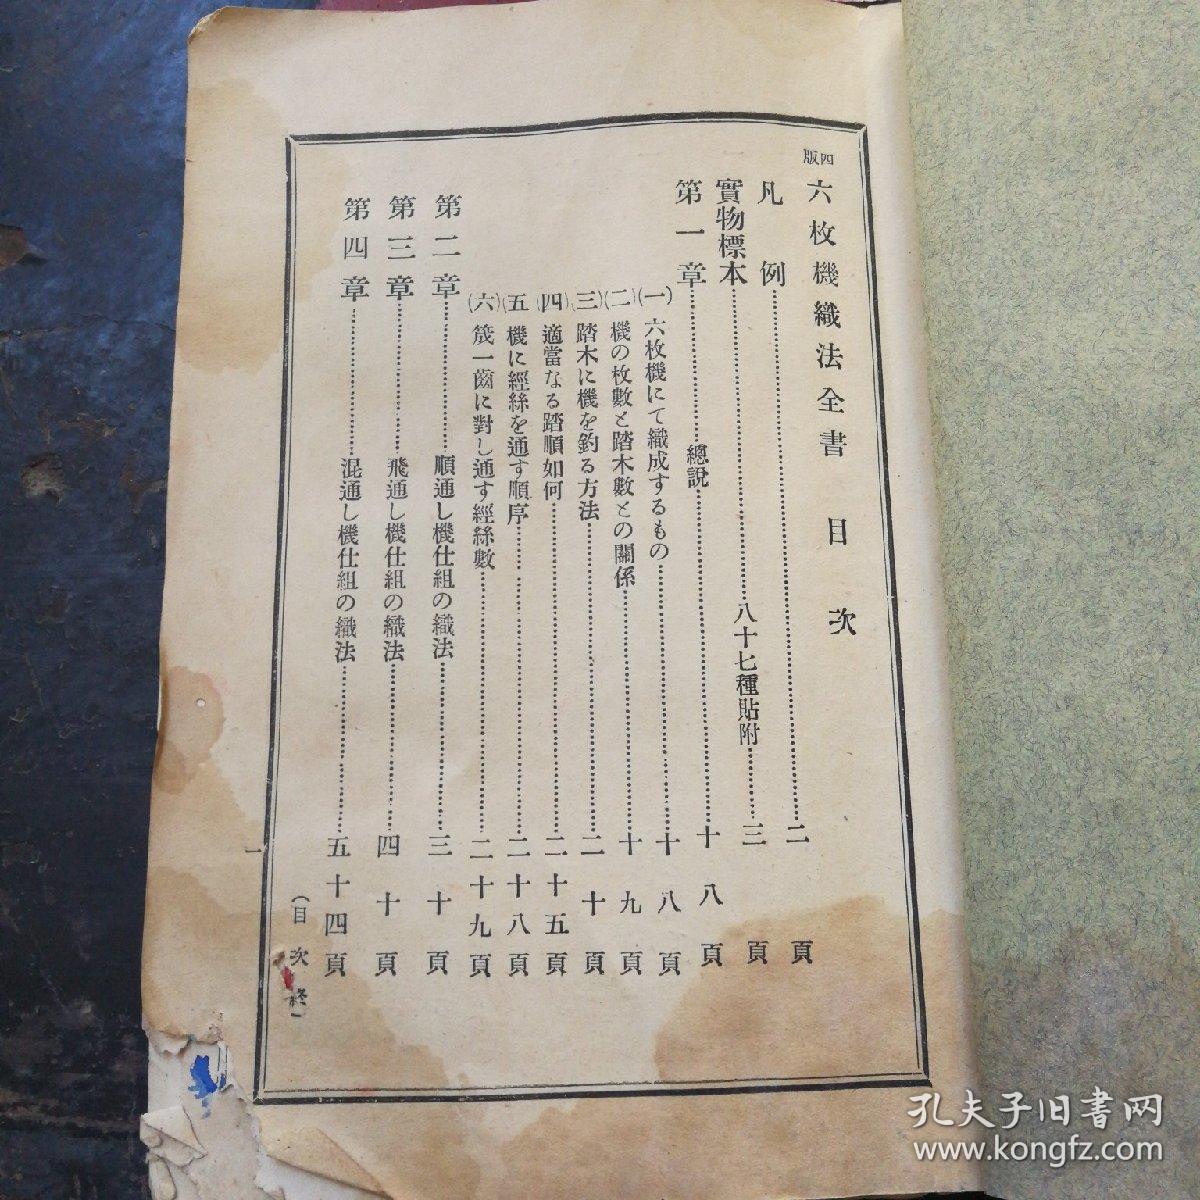 四版 六枚機織法全書 目次
凡例……二頁
實物標本……八十七種貼附……三頁
第一章……總說……十八頁
(一)六枚機にて織成するもの……十八頁
(二)機の枚數と踏木數との關係……十九頁
(三)踏木に機を釣る方法……二十頁
(四)適當なる踏順如何……二十五頁
(五)機に經絲を通す順序……二十八頁
(六)筬一齒に對し通す經絲數……二十九頁
第二章……順通し機仕組の織法……三十頁
第三章……飛通し機仕組の織法……四十頁
第四章……混通し機仕組の織法……五十四頁
(目次終)
一
孔夫子旧书网
www.kongfz.com